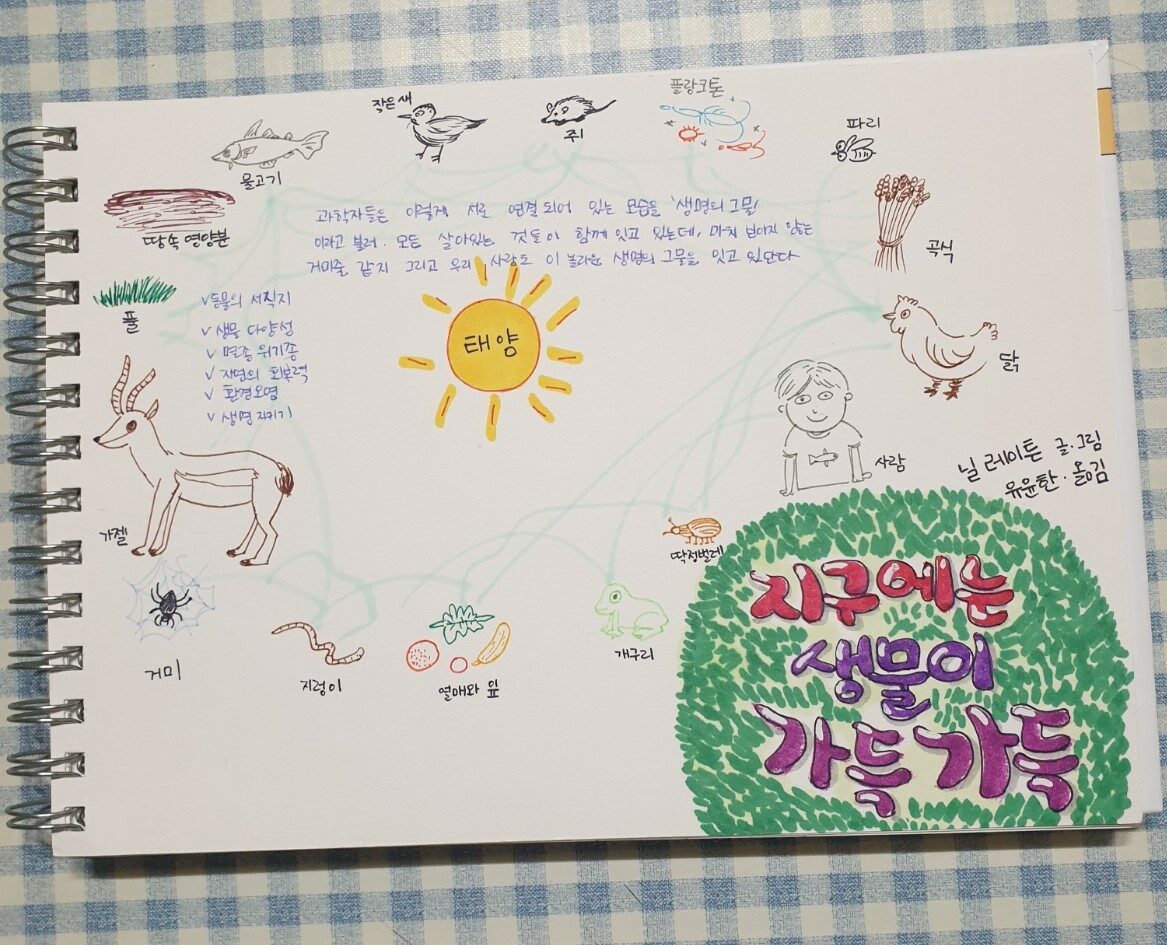 작은새
쥐
플랑크톤
파리
물고기
땅속 영양분
곡식
과학자들은 이렇게 서로 연결되어 있는 모습을 '생명의 그물'
이라고 불러. 모든 살아있는 것들이 함께 잇고 있는데, 마치 보이지 않는
거미줄 같지 그리고 우리 사람도 이 놀라운 생명의 그물을 잇고 있단다
풀
v 동물의 서식지
v 생물 다양성
v 멸종 위기종
v 자연의 회복력
v 환경오염
v 생명 지키기
태양
닭
사람
가젤
닐 레이튼 글.그림
유윤한.옮김
딱정벌레
거미
지렁이
열매와 잎
개구리
지구에는
생물이
가득 가득